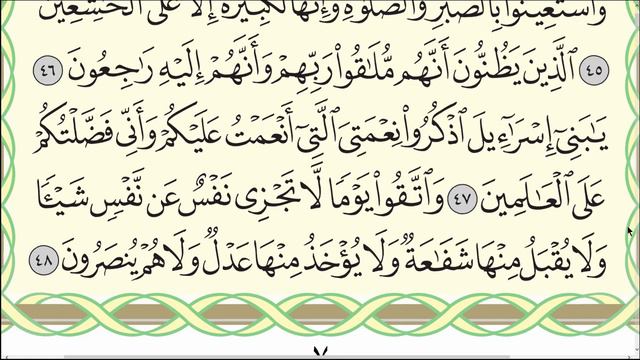 وَٱسْتَعِينُوا۟ بِٱلصَّبْرِ وَٱلصَّلَوٰةِ وَإِنَّهَا لَكَبِيرَةٌ إِلَّا عَلَى ٱلْخَٰشِعِينَ
٤٥ ٱلَّذِينَ يَظُنُّونَ أَنَّهُم مُّلَٰقُوا۟ رَبِّهِمْ وَأَنَّهُمْ إِلَيْهِ رَٰجِعُونَ ٤٦
يَٰبَنِىٓ إِسْرَٰٓءِيلَ ٱذْكُرُوا۟ نِعْمَتِىَ ٱلَّتِىٓ أَنْعَمْتُ عَلَيْكُمْ وَأَنِّى فَضَّلْتُكُمْ
عَلَى ٱلْعَٰلَمِينَ ٤٧ وَٱتَّقُوا۟ يَوْمًا لَّا تَجْزِى نَفْسٌ عَن نَّفْسٍ شَيْـًٔا
وَلَا يُقْبَلُ مِنْهَا شَفَٰعَةٌ وَلَا يُؤْخَذُ مِنْهَا عَدْلٌ وَلَا هُمْ يُنصَرُونَ ٤٨
٧